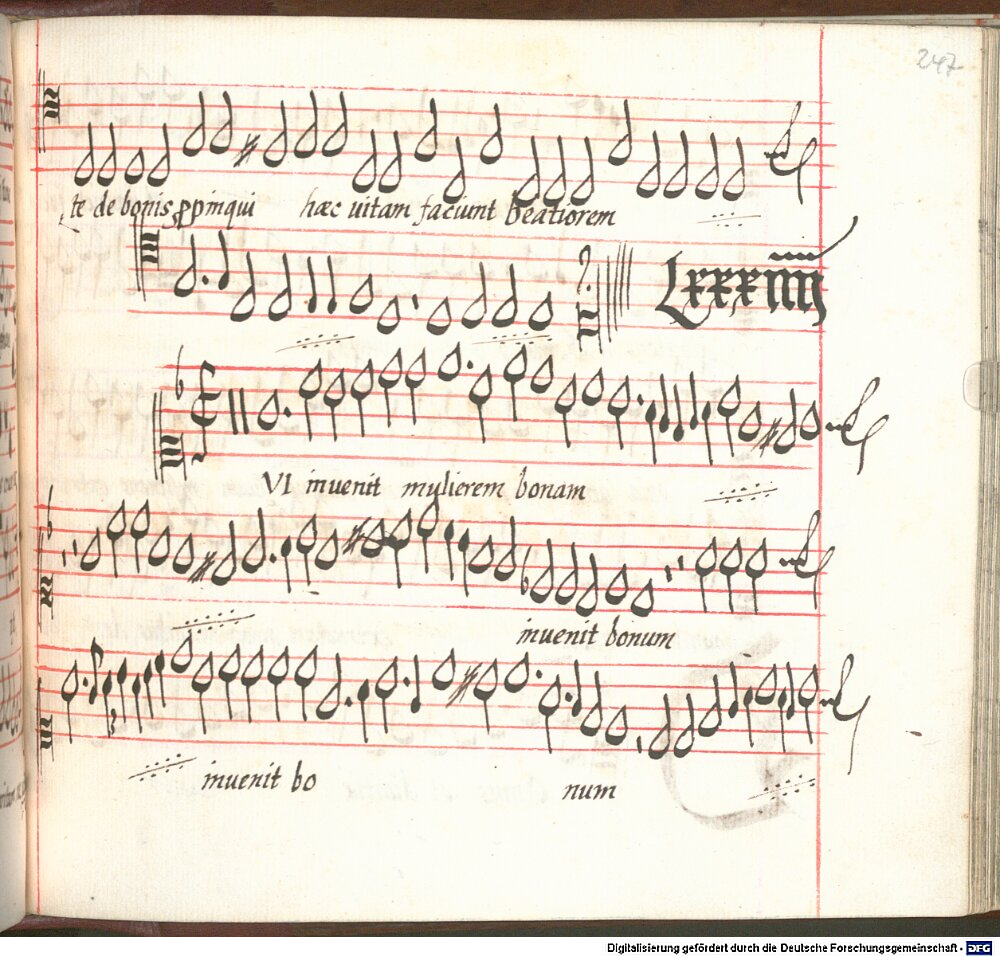 247
te de bonis ꝓpinqui hæc uitam faciunt beatiorem
Lxxxiiij
VI inuenit mulierem bonam
inuenit bonum
inuenit bo num
Digitalisierung gefördert durch die Deutsche Forschungsgemeinschaft - DFG